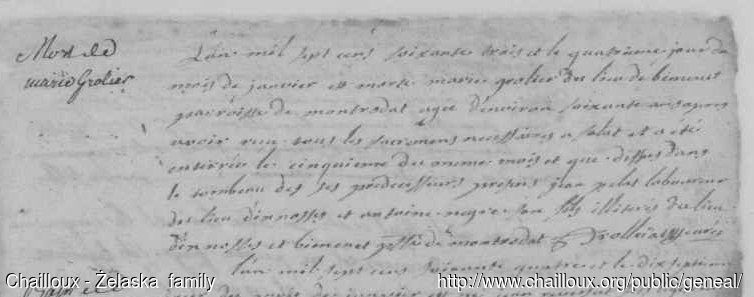 Mort de
marie Grolier
L'an mil sept cens soixante trois et le quatrieme jour du
mois de janvier est morte marie grolier du lieu de biennet
parroisse de montrodat agée d'environ soixante ans apres
avoir reçu tous les sacremens necessaires a salut et a été
enterrée le cinquieme des meme mois et que dessus dans
le tombeau des ses predecesseurs presens jean pelat laboureur
des lieu d'innosses et antoine son fils illiterés du lieu
d'innosses et biennet psse de montrodat
L'an mil sept cens soixante quatre et le dix septieme
jour du mois de janvier est
Chailloux - Żelaska family
http://www.chailloux.org/public/geneal/